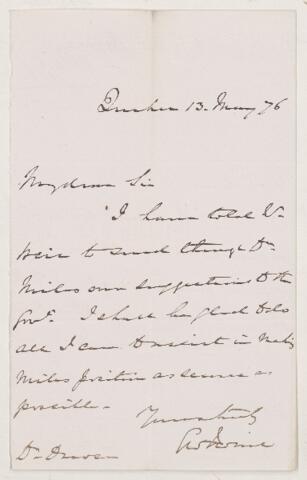 Quebec 13. May 76
My dear Sir
I have told
Weir to send through Dr
Miles own suggestions to the
Govt. I shall be glad to do
all I can to assist in making
Miles position as secure as
possible.
Yours truly
Geo Irvine
Dr